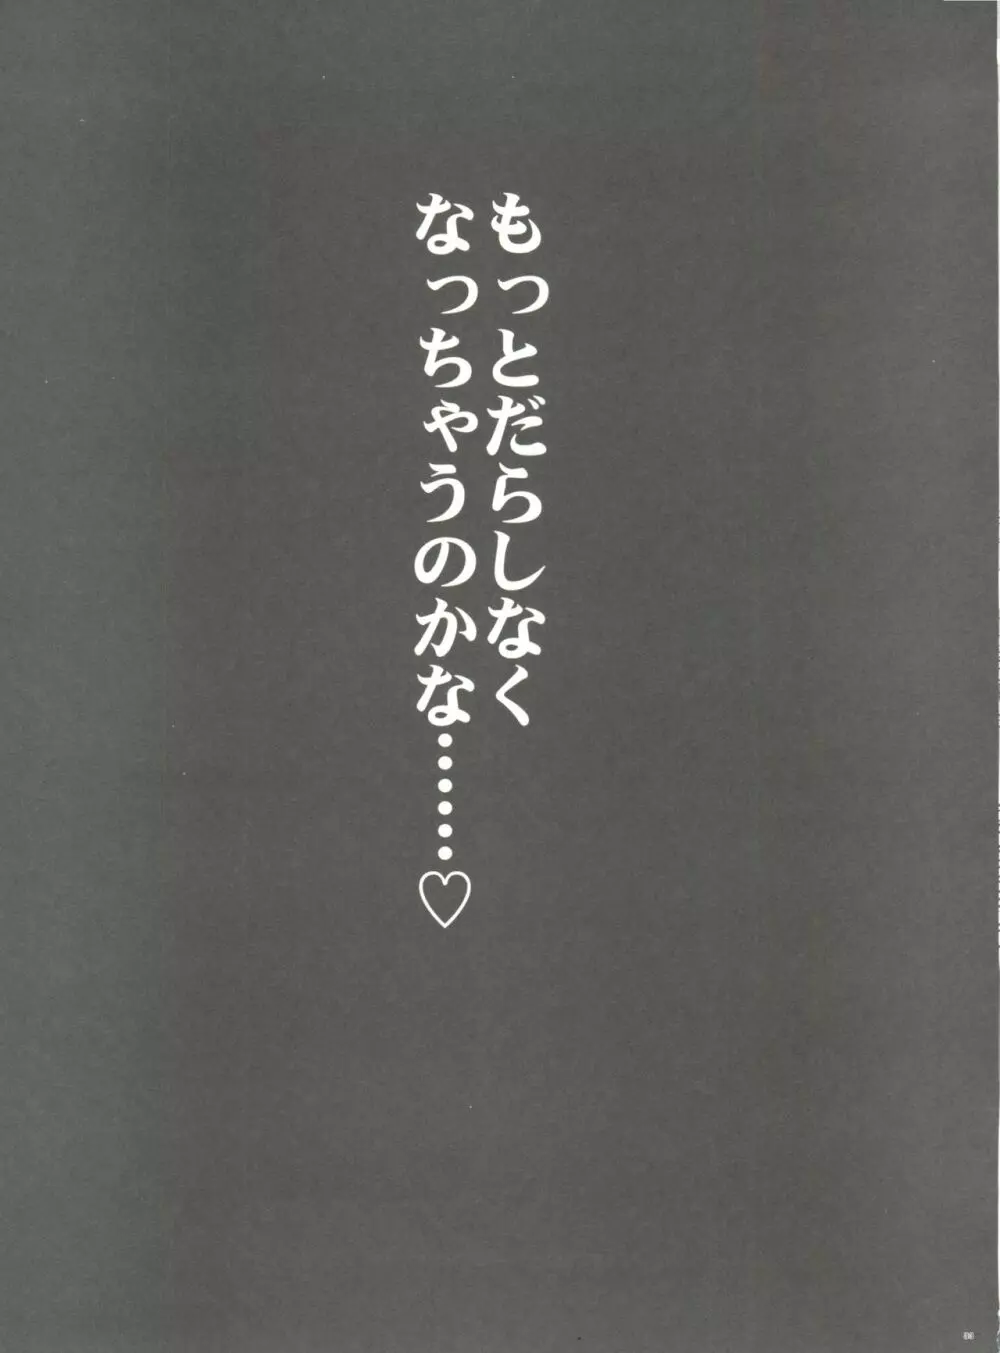 もっとだらしなく
なっちゃうのかな……♡